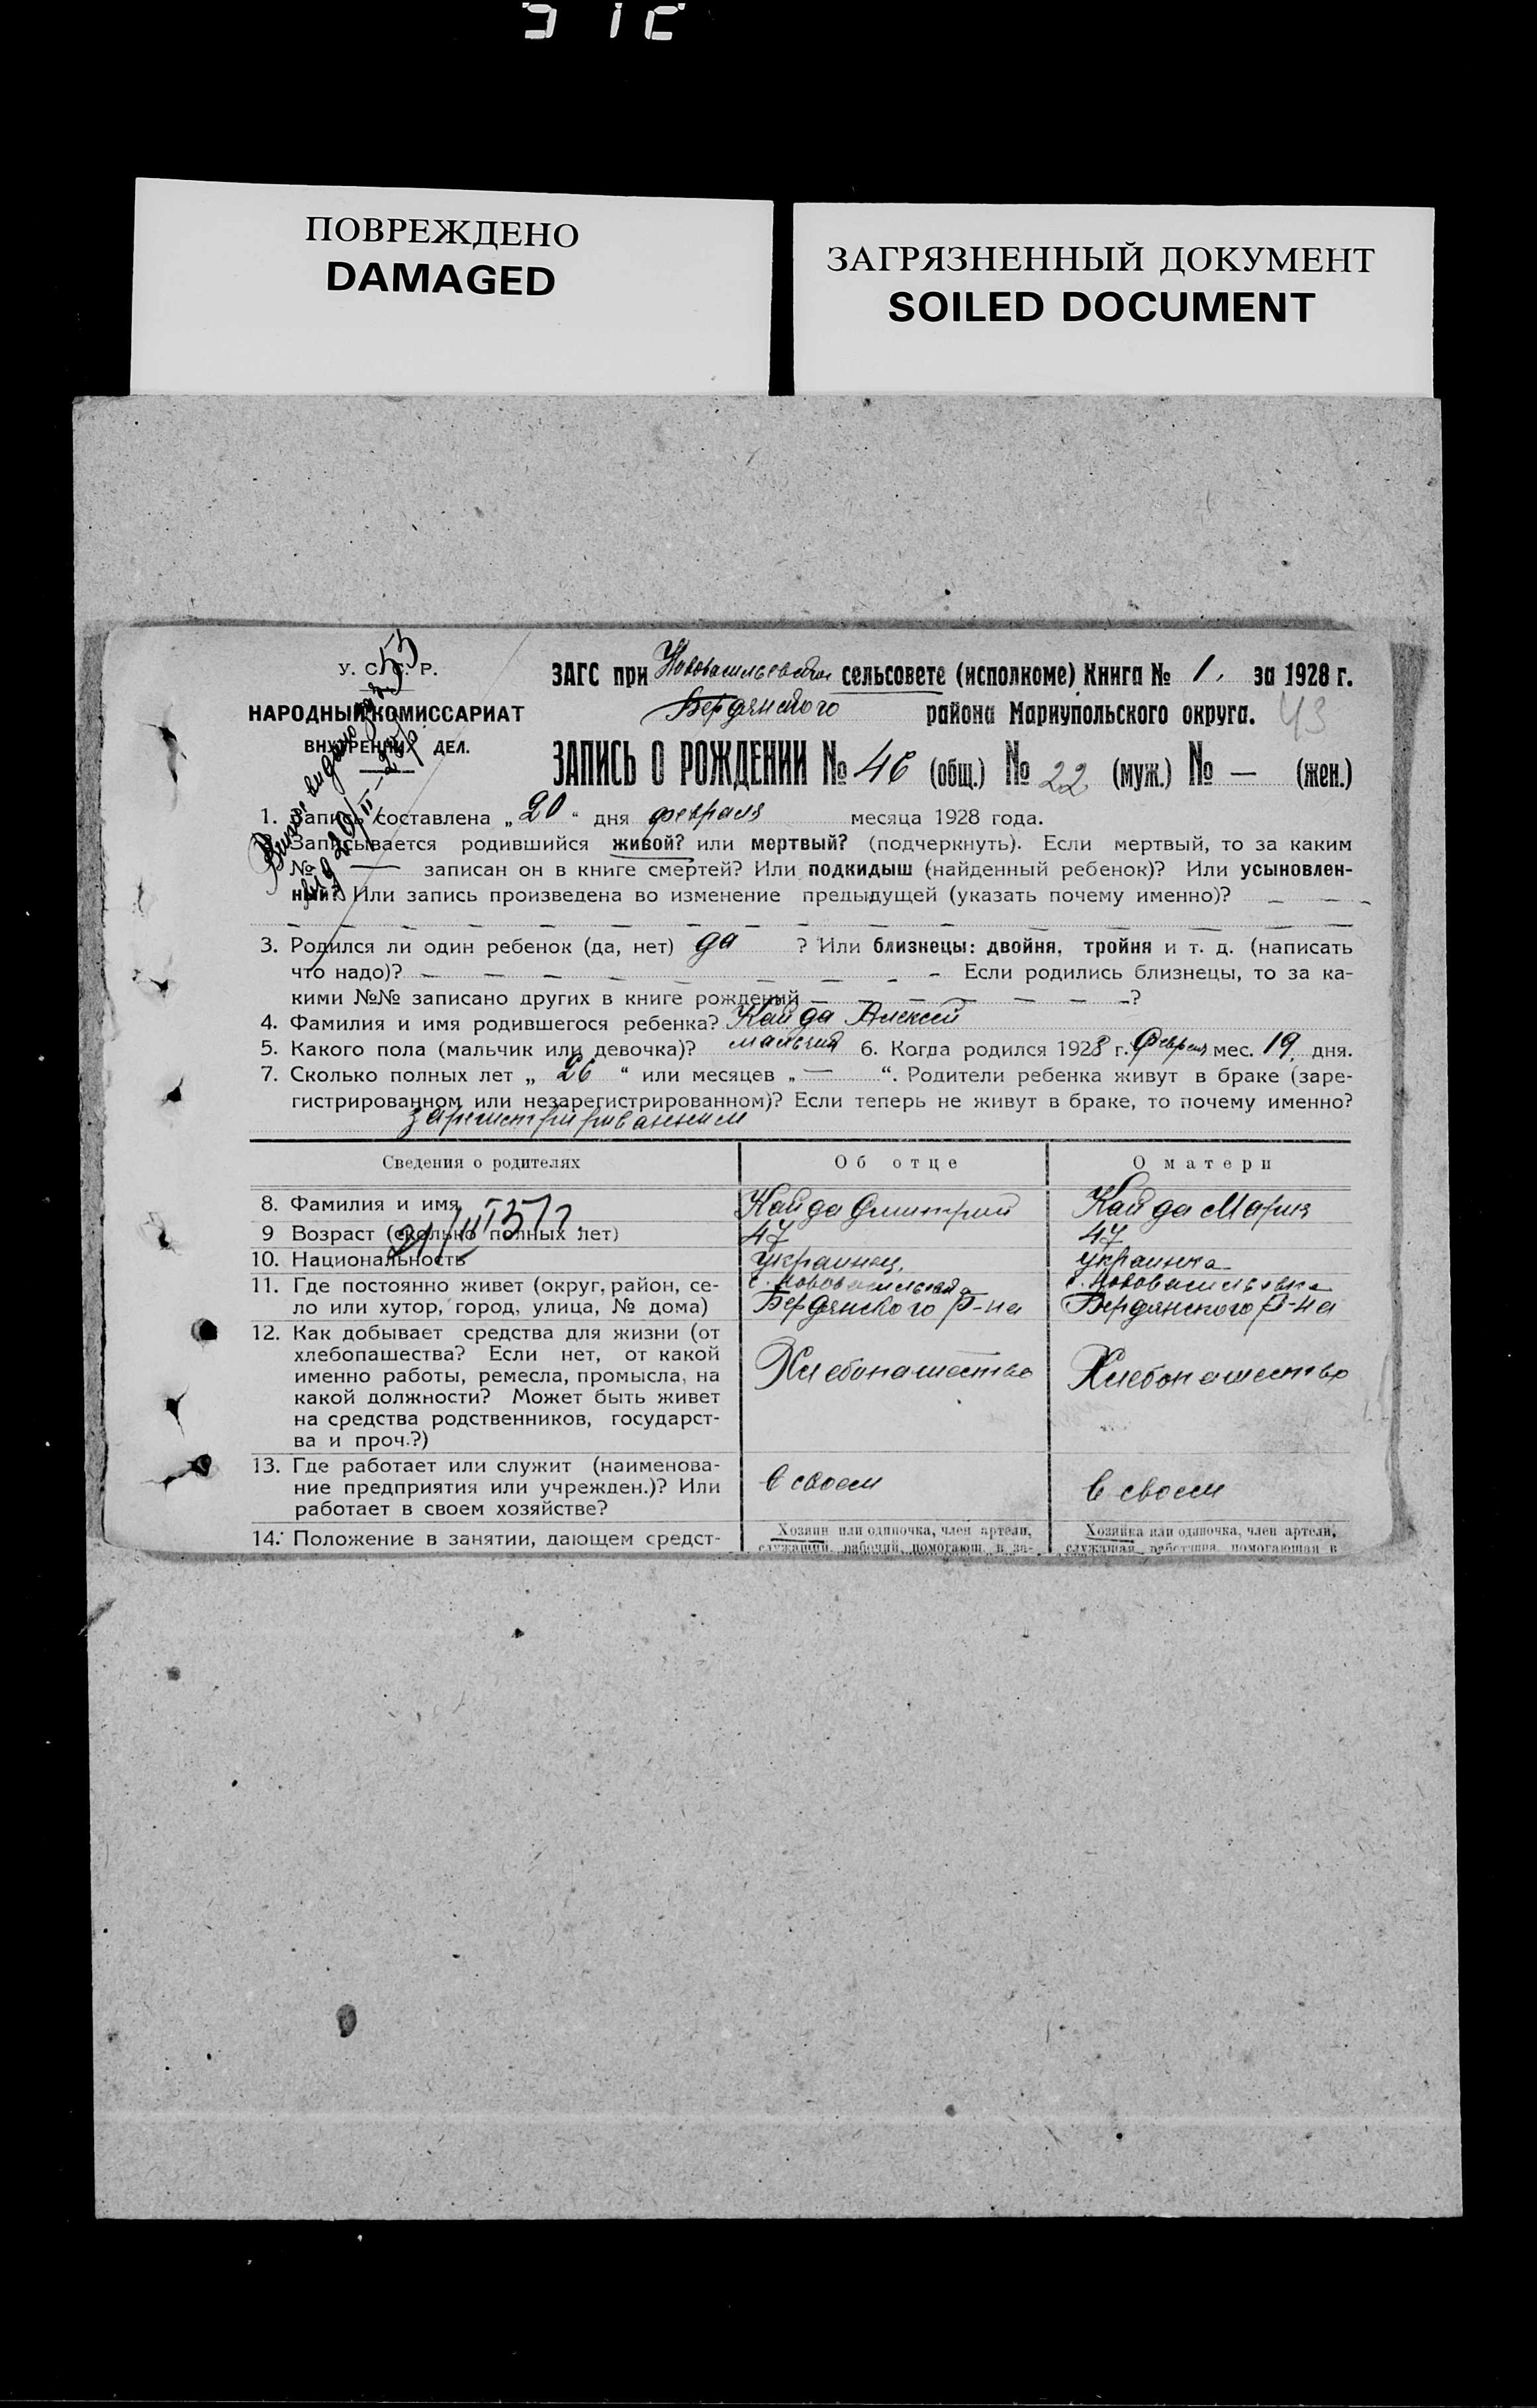 ПОВРЕЖДЕНО
DAMAGED
ЗАГРЯЗНЕННЫЙ ДОКУМЕНТ
SOILED DOCUMENT
У. С. С. Р.
НАРОДНЫЙ КОМИССАРИАТ
ВНУТРЕННИХ ДЕЛ.
ЗАГС при сельсовете (исполкоме) Книга № 1. за 1928 г.
Бердянского района Мариупольского округа. 43
ЗАПИСЬ О РОЖДЕНИИ № 46 (общ.) № 22 (муж.) № — (жен.)
1. Запись составлена „20“ дня февраля месяца 1928 года.
Записывается родившийся живой? или мертвый? (подчеркнуть). Если мертвый, то за каким
№ — записан он в книге смертей? Или подкидыш (найденный ребенок)? Или усыновлен-
ный? Или запись произведена во изменение предыдущей (указать почему именно)? — — —
3. Родился ли один ребенок (да, нет) да ? Или близнецы: двойня, тройня и т. д. (написать
что надо)? — — — — — — — — — Если родились близнецы, то за ка-
кими №№ записано других в книге рождений — — — — — — —?
4. Фамилия и имя родившегося ребенка? Кайда Алексей
5. Какого пола (мальчик или девочка)? мальчик 6. Когда родился 1928 г. Февраля мес. 19 дня.
7. Сколько полных лет „ 26 “ или месяцев „ — “. Родители ребенка живут в браке (заре-
гистрированном или незарегистрированном)? Если теперь не живут в браке, то почему именно?
зарегистрированным
Сведения о родителях Об отце О матери
8. Фамилия и имя Кайда Дмитрий Кайда Мария
9 Возраст (сколько полных лет) 47 47
10. Национальность украинец. украинка
11. Где постоянно живет (округ, район, се- с. Нововасильевка с. Нововасильевка
ло или хутор, город, улица, № дома) Бердянского Р-на Бердянского Р-на
12. Как добывает средства для жизни (от
хлебопашества? Если нет, от какой
именно работы, ремесла, промысла, на Хлебопашество Хлебопашество
какой должности? Может быть живет
на средства родственников, государст-
ва и проч.?)
13. Где работает или служит (наименова-
ние предприятия или учрежден.)? Или в своем в своем
работает в своем хозяйстве?
14. Положение в занятии, дающем средст- Хозяин или одиночка, член артели, Хозяйка или одиночка, член артели,
служащий, рабочий, помогающ. в за- служащая, работница, помогающая в